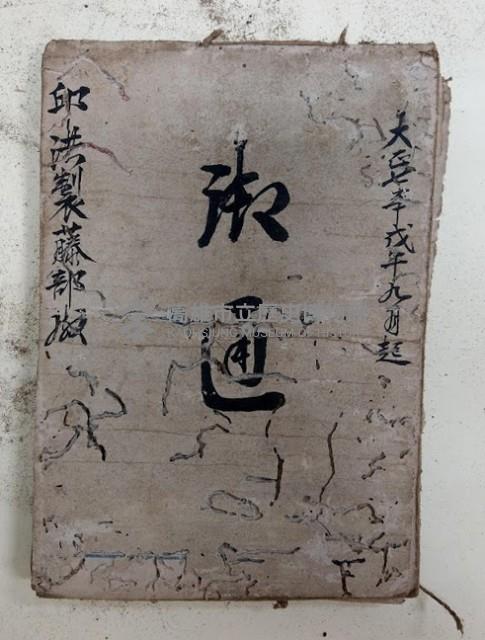 大正七年戊午年九月起
御通
邱洪製藤部殿
高雄市立歷史博物館
KAOHSIUNG MUSEUM OF HISTORY